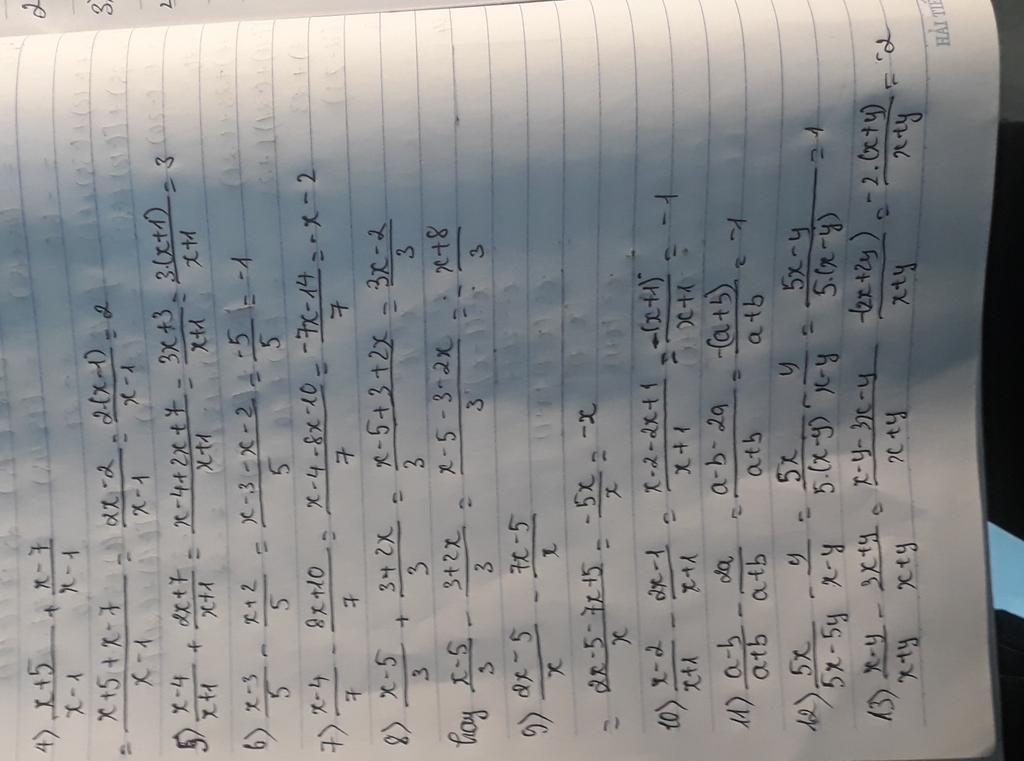 4) \frac{x+5}{x-1} + \frac{x-7}{x-1}
= \frac{x+5+x-7}{x-1} = \frac{2x-2}{x-1} = \frac{2(x-1)}{x-1} = 2
5) \frac{x-4}{x+1} + \frac{2x+7}{x+1} = \frac{x-4+2x+7}{x+1} = \frac{3x+3}{x+1} = \frac{3(x+1)}{x+1} = 3
6) \frac{x-3}{5} - \frac{x+2}{5} = \frac{x-3-x-2}{5} = \frac{-5}{5} = -1
7) \frac{x-4}{7} - \frac{8x+10}{7} = \frac{x-4-8x-10}{7} = \frac{-7x-14}{7} = -x-2
8) \frac{x-5}{3} + \frac{3+2x}{3} = \frac{x-5+3+2x}{3} = \frac{3x-2}{3}
hay \frac{x-5}{3} - \frac{3+2x}{3} = \frac{x-5-3-2x}{3} = - \frac{x+8}{3}
9) \frac{2x-5}{x} - \frac{7x-5}{x}
= \frac{2x-5-7x+5}{x} = \frac{-5x}{x} = -x
10) \frac{x-2}{x+1} - \frac{2x-1}{x+1} = \frac{x-2-2x+1}{x+1} = \frac{-(x+1)}{x+1} = -1
11) \frac{a-b}{a+b} - \frac{2a}{a+b} = \frac{a-b-2a}{a+b} = \frac{-(a+b)}{a+b} = -1
12) \frac{5x}{5x-5y} - \frac{y}{x-y} = \frac{5x}{5.(x-y)} - \frac{y}{x-y} = \frac{5x-y}{5(x-y)} = 1
13) \frac{x-y}{x+y} - \frac{3x+y}{x+y} = \frac{x-y-3x-y}{x+y} = \frac{-(2x+2y)}{x+y} = \frac{-2.(x+y)}{x+y} = -2
HẢI TIẾ